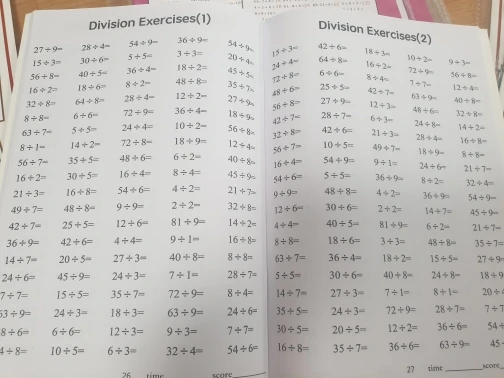 Division Exercises(1)
27÷9= 28÷4= 54÷9= 36÷9= 54÷9=
15÷3= 30÷6= 5÷5= 3÷3= 20÷4=
56÷8= 40÷5= 36÷4= 18÷2= 45÷5=
16÷2= 18÷6= 8÷2= 48÷8= 35÷7=
32÷8= 64÷8= 28÷4= 12÷2= 27÷9=
8÷8= 6÷6= 72÷9= 36÷4= 18÷9=
63÷7= 5÷5= 24÷4= 10÷2= 56÷8=
8÷1= 14÷2= 72÷8= 18÷9= 12÷4=
56÷7= 35÷5= 48÷6= 6÷2= 40÷8=
16÷2= 30÷5= 16÷4= 8÷4= 45÷9=
21÷3= 16÷8= 54÷6= 4÷2= 21÷7=
49÷7= 48÷8= 9÷9= 2÷2= 32÷8=
42÷7= 25÷5= 12÷6= 81÷9= 14÷2=
36÷9= 42÷6= 4÷4= 9÷1= 16÷8=
14÷7= 20÷5= 27÷3= 40÷8= 8÷8=
24÷6= 45÷9= 24÷3= 7÷1= 28÷7=
7÷7= 15÷5= 35÷7= 72÷9= 8÷4=
63÷9= 24÷3= 18÷3= 63÷9= 24÷6=
8÷6= 6÷6= 12÷3= 9÷3= 7÷7=
4÷8= 10÷5= 6÷3= 32÷4= 54÷6=
26 time score
Division Exercises(2)
15÷3= 42÷6= 18÷3= 10÷2= 9÷3=
24÷4= 64÷8= 16÷2= 72÷9= 56÷8=
72÷8= 6÷6= 8÷4= 7÷7= 12÷4=
48÷6= 25÷5= 42÷7= 63÷9= 40÷8=
56÷8= 27÷9= 12÷3= 48÷6= 32÷8=
42÷7= 28÷7= 6÷3= 24÷8= 14÷2=
32÷8= 42÷6= 21÷3= 28÷4= 16÷8=
56÷7= 10÷5= 49÷7= 18÷9= 8÷8=
16÷4= 54÷9= 9÷1= 24÷6= 21÷7=
54÷6= 5÷5= 36÷9= 8÷2= 32÷4=
9÷9= 48÷8= 4÷2= 36÷9= 54÷9=
12÷6= 30÷6= 2÷2= 14÷7= 45÷9=
4÷4= 40÷5= 81÷9= 6÷2= 21÷7=
8÷8= 18÷6= 3÷3= 48÷8= 35÷7=
63÷7= 36÷4= 18÷2= 15÷5= 27÷9=
5÷5= 30÷6= 40÷8= 24÷8= 18÷9
14÷7= 27÷3= 7÷1= 8÷1= 20÷4
35÷5= 24÷3= 72÷9= 28÷7= 7÷7
30÷5= 20÷5= 12÷2= 36÷6= 54÷
16÷8= 35÷7= 36÷6= 63÷9= 45÷
27 time score